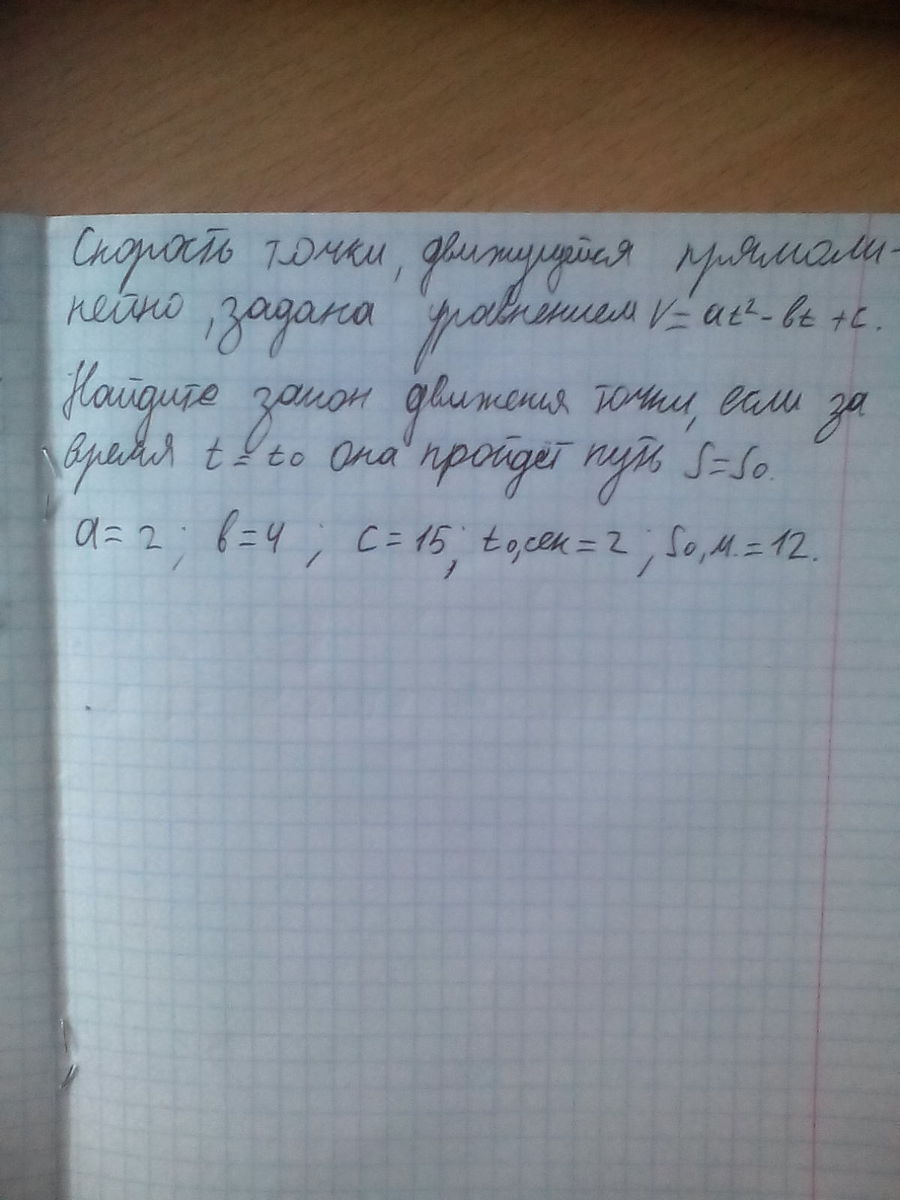 Скорость точки, движущейся прямоли-
нейно, задана уравнением V=at²-bt+c.
Найдите закон движения точки, если за
время t=t₀ она пройдёт путь S=S₀.
a=2; b=4; c=15; t₀,сек=2; S₀,м.=12.